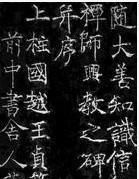 隨大善知識信
禪師興教之碑
并序
上柱國越王貞
前中書舍人